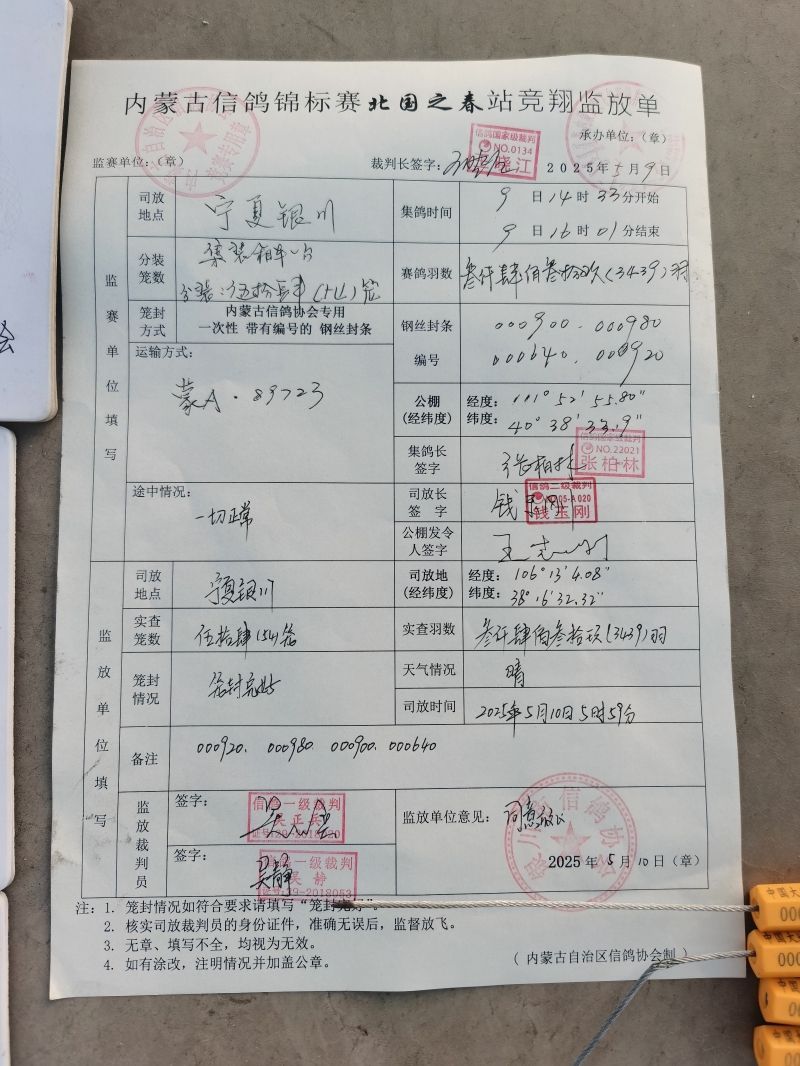 内蒙古信鸽锦标赛北国之春站竞翔监放单
承办单位：（章）
信鸽国家级裁判
NO.0134
监赛单位：（章）
裁判长签字：
2025年5月9日
监赛单位填写
司放地点
宁夏银川
集鸽时间
9日14时33分开始
9日16时01分结束
分装笼数
集装箱车一台
分装：伍拾肆（54）笼
赛鸽羽数
叁仟肆佰叁拾玖（3439）羽
笼封方式
内蒙古信鸽协会专用
一次性 带有编号的 钢丝封条
钢丝封条编号
000900.000980
000640.000920
运输方式：
蒙A·89723
公棚（经纬度）
经度：101°52′55.80″
纬度：40°38′33.9″
集鸽长签字
张柏林
信鸽国家级裁判
NO.22021
张柏林
途中情况：
一切正常
司放长签字
钱玉刚
信鸽二级裁判
钱玉刚
公棚发令人签字
监放单位填写
司放地点
宁夏银川
司放地（经纬度）
经度：106°13′4.08″
纬度：38°16′32.32″
实查笼数
伍拾肆（54）笼
实查羽数
叁仟肆佰叁拾玖（3439）羽
笼封情况
笼封完好
天气情况
晴
司放时间
2025年5月10日5时59分
备注
000920. 000980. 000900. 000640
监放裁判员
签字：
信鸽一级裁判
吴正兵
签字：
吴静
信鸽一级裁判
吴静
证号:09-2018053
监放单位意见：
同意放飞
银川市信鸽协会
2025年5月10日（章）
注：1. 笼封情况如符合要求请填写“笼封完好”。
2. 核实司放裁判员的身份证件，准确无误后，监督放飞。
3. 无章、填写不全，均视为无效。
4. 如有涂改，注明情况并加盖公章。
（内蒙古自治区信鸽协会制）